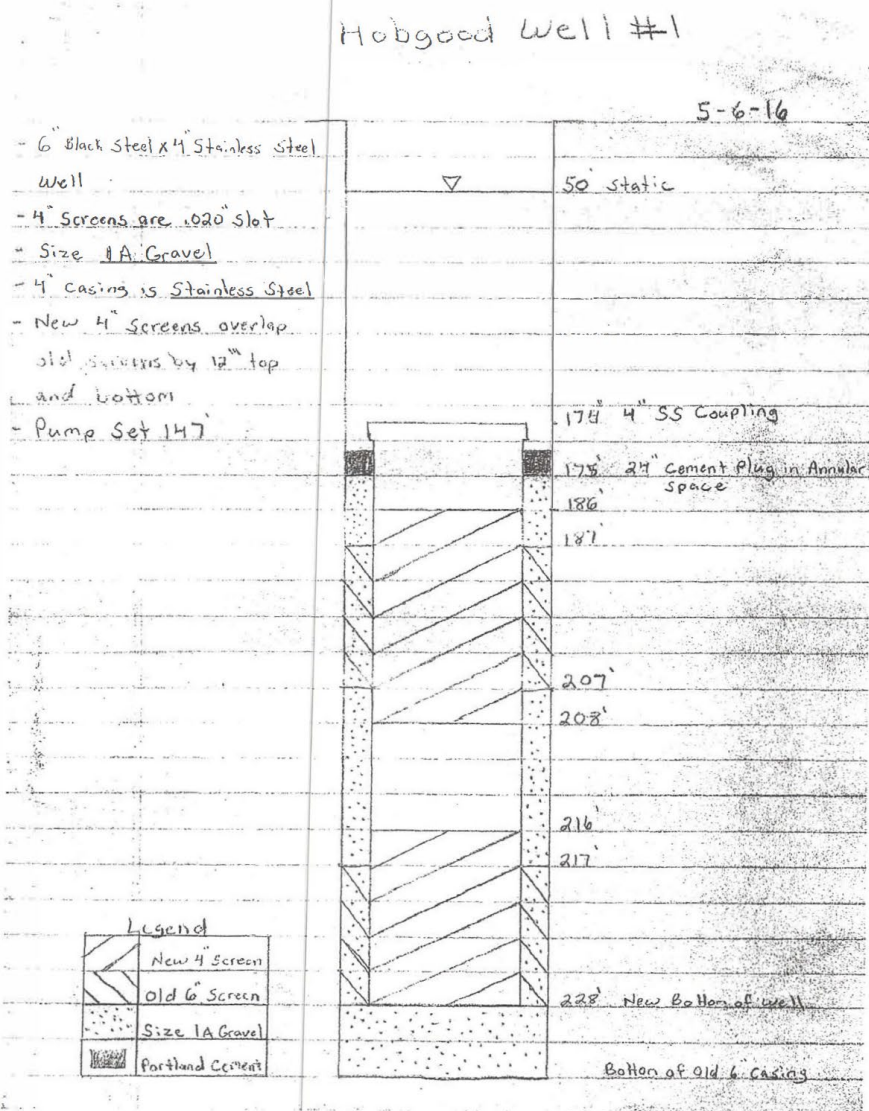 Hobgood Well #1
5-6-16
- 6" Black Steel x 4" Stainless Steel
Well
- 4" Screens are .020" Slot
- Size 1A Gravel
- 4" Casing is Stainless Steel
- New 4" Screens overlap
old screens by 12" top
and bottom
- Pump Set 147'
50' Static
174' 4" SS Coupling
178' 24" Cement Plug in Annular
Space
186'
187'
207'
208'
216'
217'
228' New Bottom of well
Bottom of Old 6" Casing
Legend
New 4" Screen
Old 6" Screen
Size 1A Gravel
Portland Cement